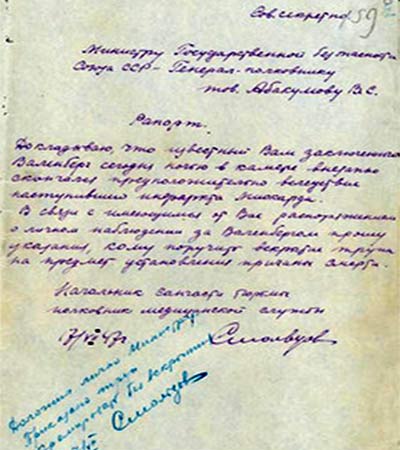 Сов. секретно 59
Министру Государственной безопасности
Союза ССР - Генерал-полковнику
тов. Абакумову В.С.
Рапорт.
Докладываю, что известный Вам заключенный
Валенберг сегодня ночью в камере внезапно
скончался предположительно вследствие
наступившего инфаркта миокарда.
В связи с имеющимся от Вас распоряжением
о личном наблюдении за Валенбергом прошу
указания, кому поручить вскрытие трупа
на предмет установления причины смерти.
Начальник санчасти тюрьмы
полковник медицинской службы
17/VII 47г. Смольцов
Доложил лично Министру
Приказано труп
кремировать без вскрытия
17/VII Смольцов